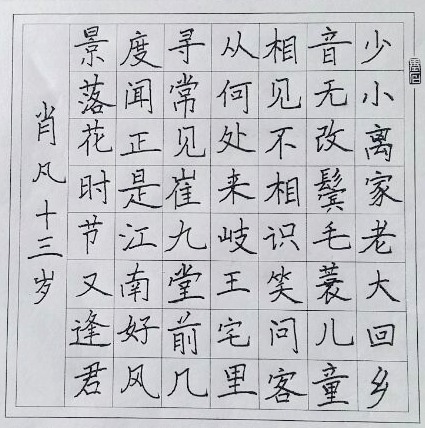 少小离家老大回乡
音无改鬓毛蓑儿童
相见不相识笑问客
从何处来岐王宅里
寻常见崔九堂前几
度闻正是江南好风
景落花时节又逢君
肖凡十三岁